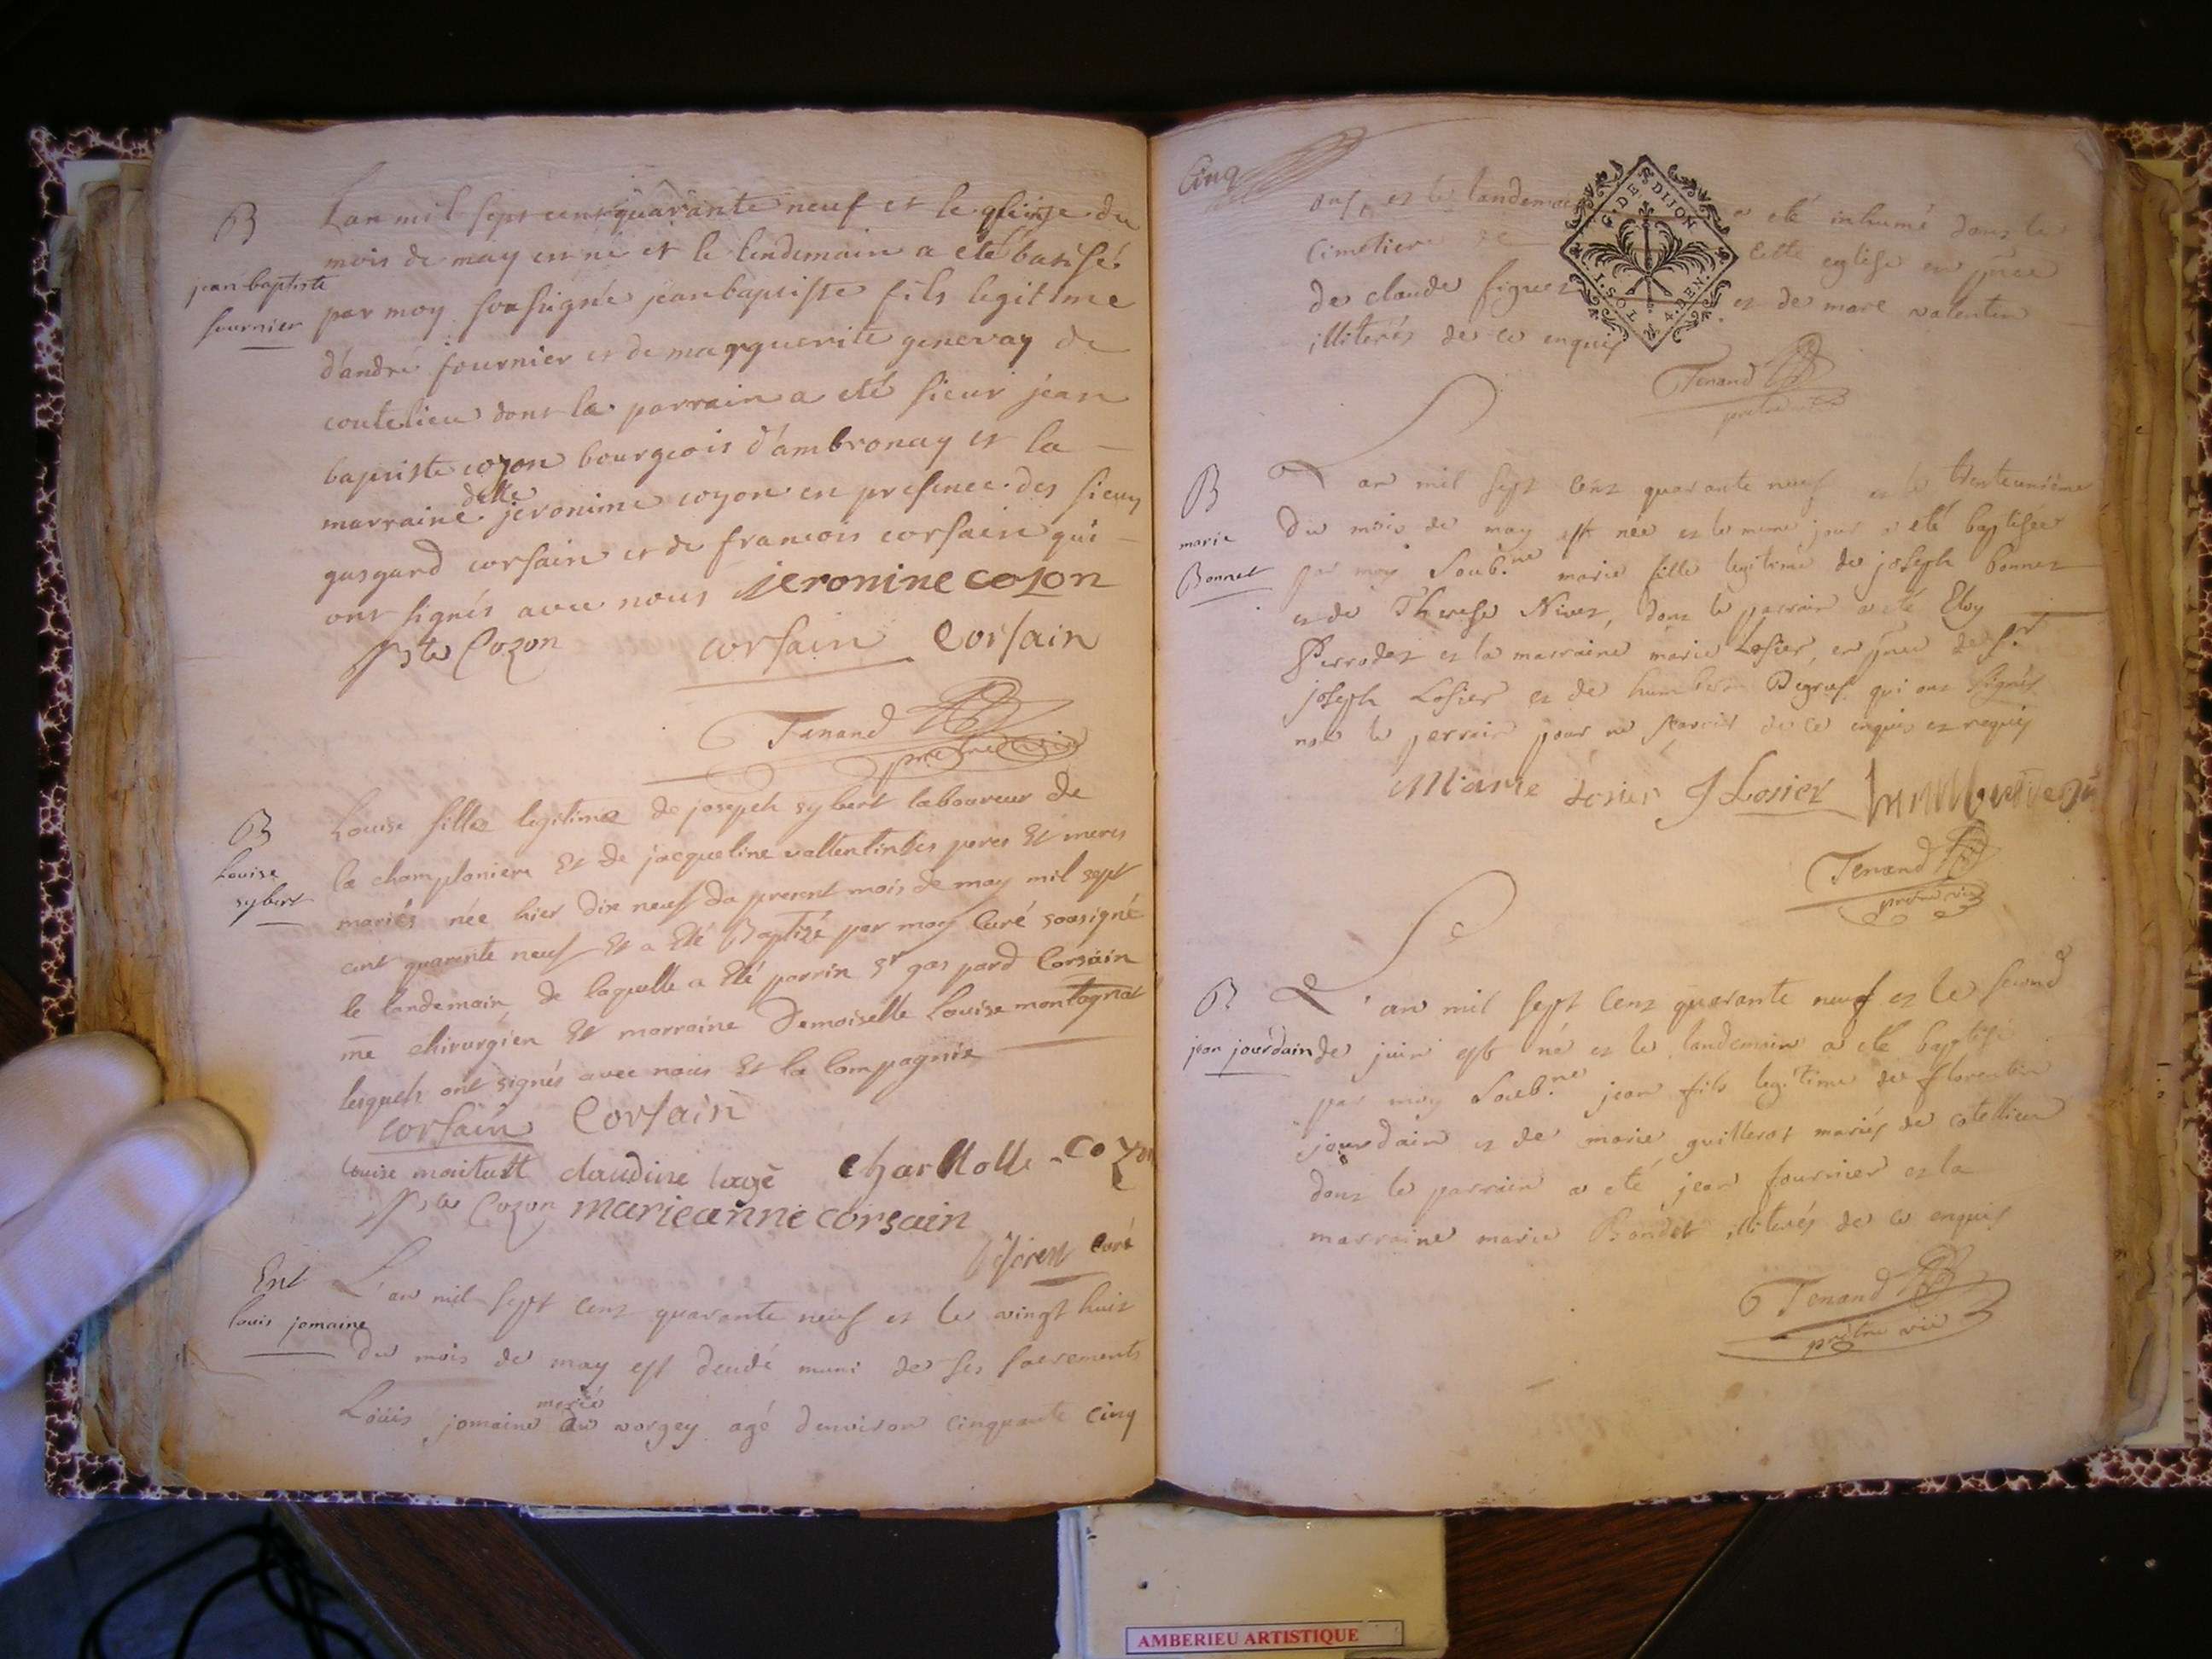 B
jean baptiste
fournier
Lan mil sept cent quarante neuf et le quinze du
mois de may est né et le lendemain a eté batisé
par moy sousigné jean baptiste fils legitime
d'andré fournier et de margguerite genevay de
coutelieu dont le parrain a eté sieur jean
baptiste cozon bourgeois d'ambronay et la
marraine delle jeronime cozon en presence des sieurs
gasgard corsain et de francois corsain qui
ont signés avec nous jeronine cozon
Bte Cozon corsain Corsain
Tenand
pretre vic
B
Louise
sybert
Louise fille legitime de joseph sybert laboureur de
la champlaniere Et de jacqueline vallentin ses peres Et meres
mariés née hier dix neuf du present mois de may mil sept
cent quarente neuf Et a Eté Baptizé par moy Curé sousigné
le landemain, de laquelle a Eté parrin Sr gaspard Corsain
me chirurgien Et marraine Demoiselle Louise montagnat
lesquels ont signés avec nous Et la Compagnie
corsain Corsain
Louise claudine Charllotte Cozon
Bte Cozon marieanne corsain
Curé
Ent
louis jomaine
L'an mil sept cent quarante neuf et le vingt huit
du mois de may est decedé muni de ses sacrements
marié
Loüis jomaine au vorgey agé denviron cinquante cinq
Cinq
ans, et le landemain a eté inhumé dans le
Cimetiere de cette eglise en pnce
de claude figuet et de marc valentin
illiterés de ce enquis
G. DE DIJON
Tenand
pretre vic
B
marie
Bonnet
L'an mil sept cent quarante neuf et le trenteunième
du mois de may est née et le meme jour a eté baptisée
par moy Soub.né marie fille legitime de joseph bonnet
et de Therese Nivet, dont le parrain a eté Eloy
Perrodet et la marraine marie Losier, en pnce de sr
joseph Losier et de humbert Degrus qui ont signés
non le perrain pour ne scavoir de ce enquis et requis
Marie Losier J Losier
Tenand
pretre vic
B
jean jourdain
L'an mil sept cent quarante neuf et le second
de juin est né et le landemain a eté baptisé
par moy Soub.né jean fils legitime de florentin
jourdain et de marie guillerot mariés de cotellieu
dont le parrain a eté jean fournier et la
marraine marie Bondet illiterés de ce enquis
Tenand
pretre vic
AMBERIEU ARTISTIQUE